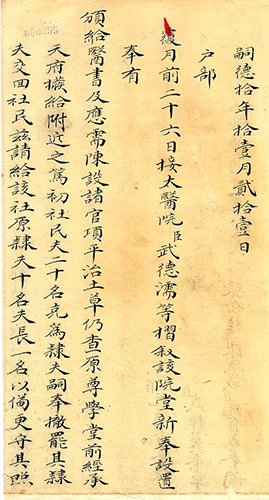 嗣德拾年拾壹月貳拾壹日
户部
月前二十六日接太醫院臣武德濡等摺叙該院堂新奉設置
奉有
頒給醫書及應需陳設諸官項平治土草仍查原尊學堂前經承
天府撥給附近之爲初社民夫二十名充爲隸夫嗣奉撤罷其隸
夫交回社民茲請給該社原隸夫十名夫長一名以備更守其照